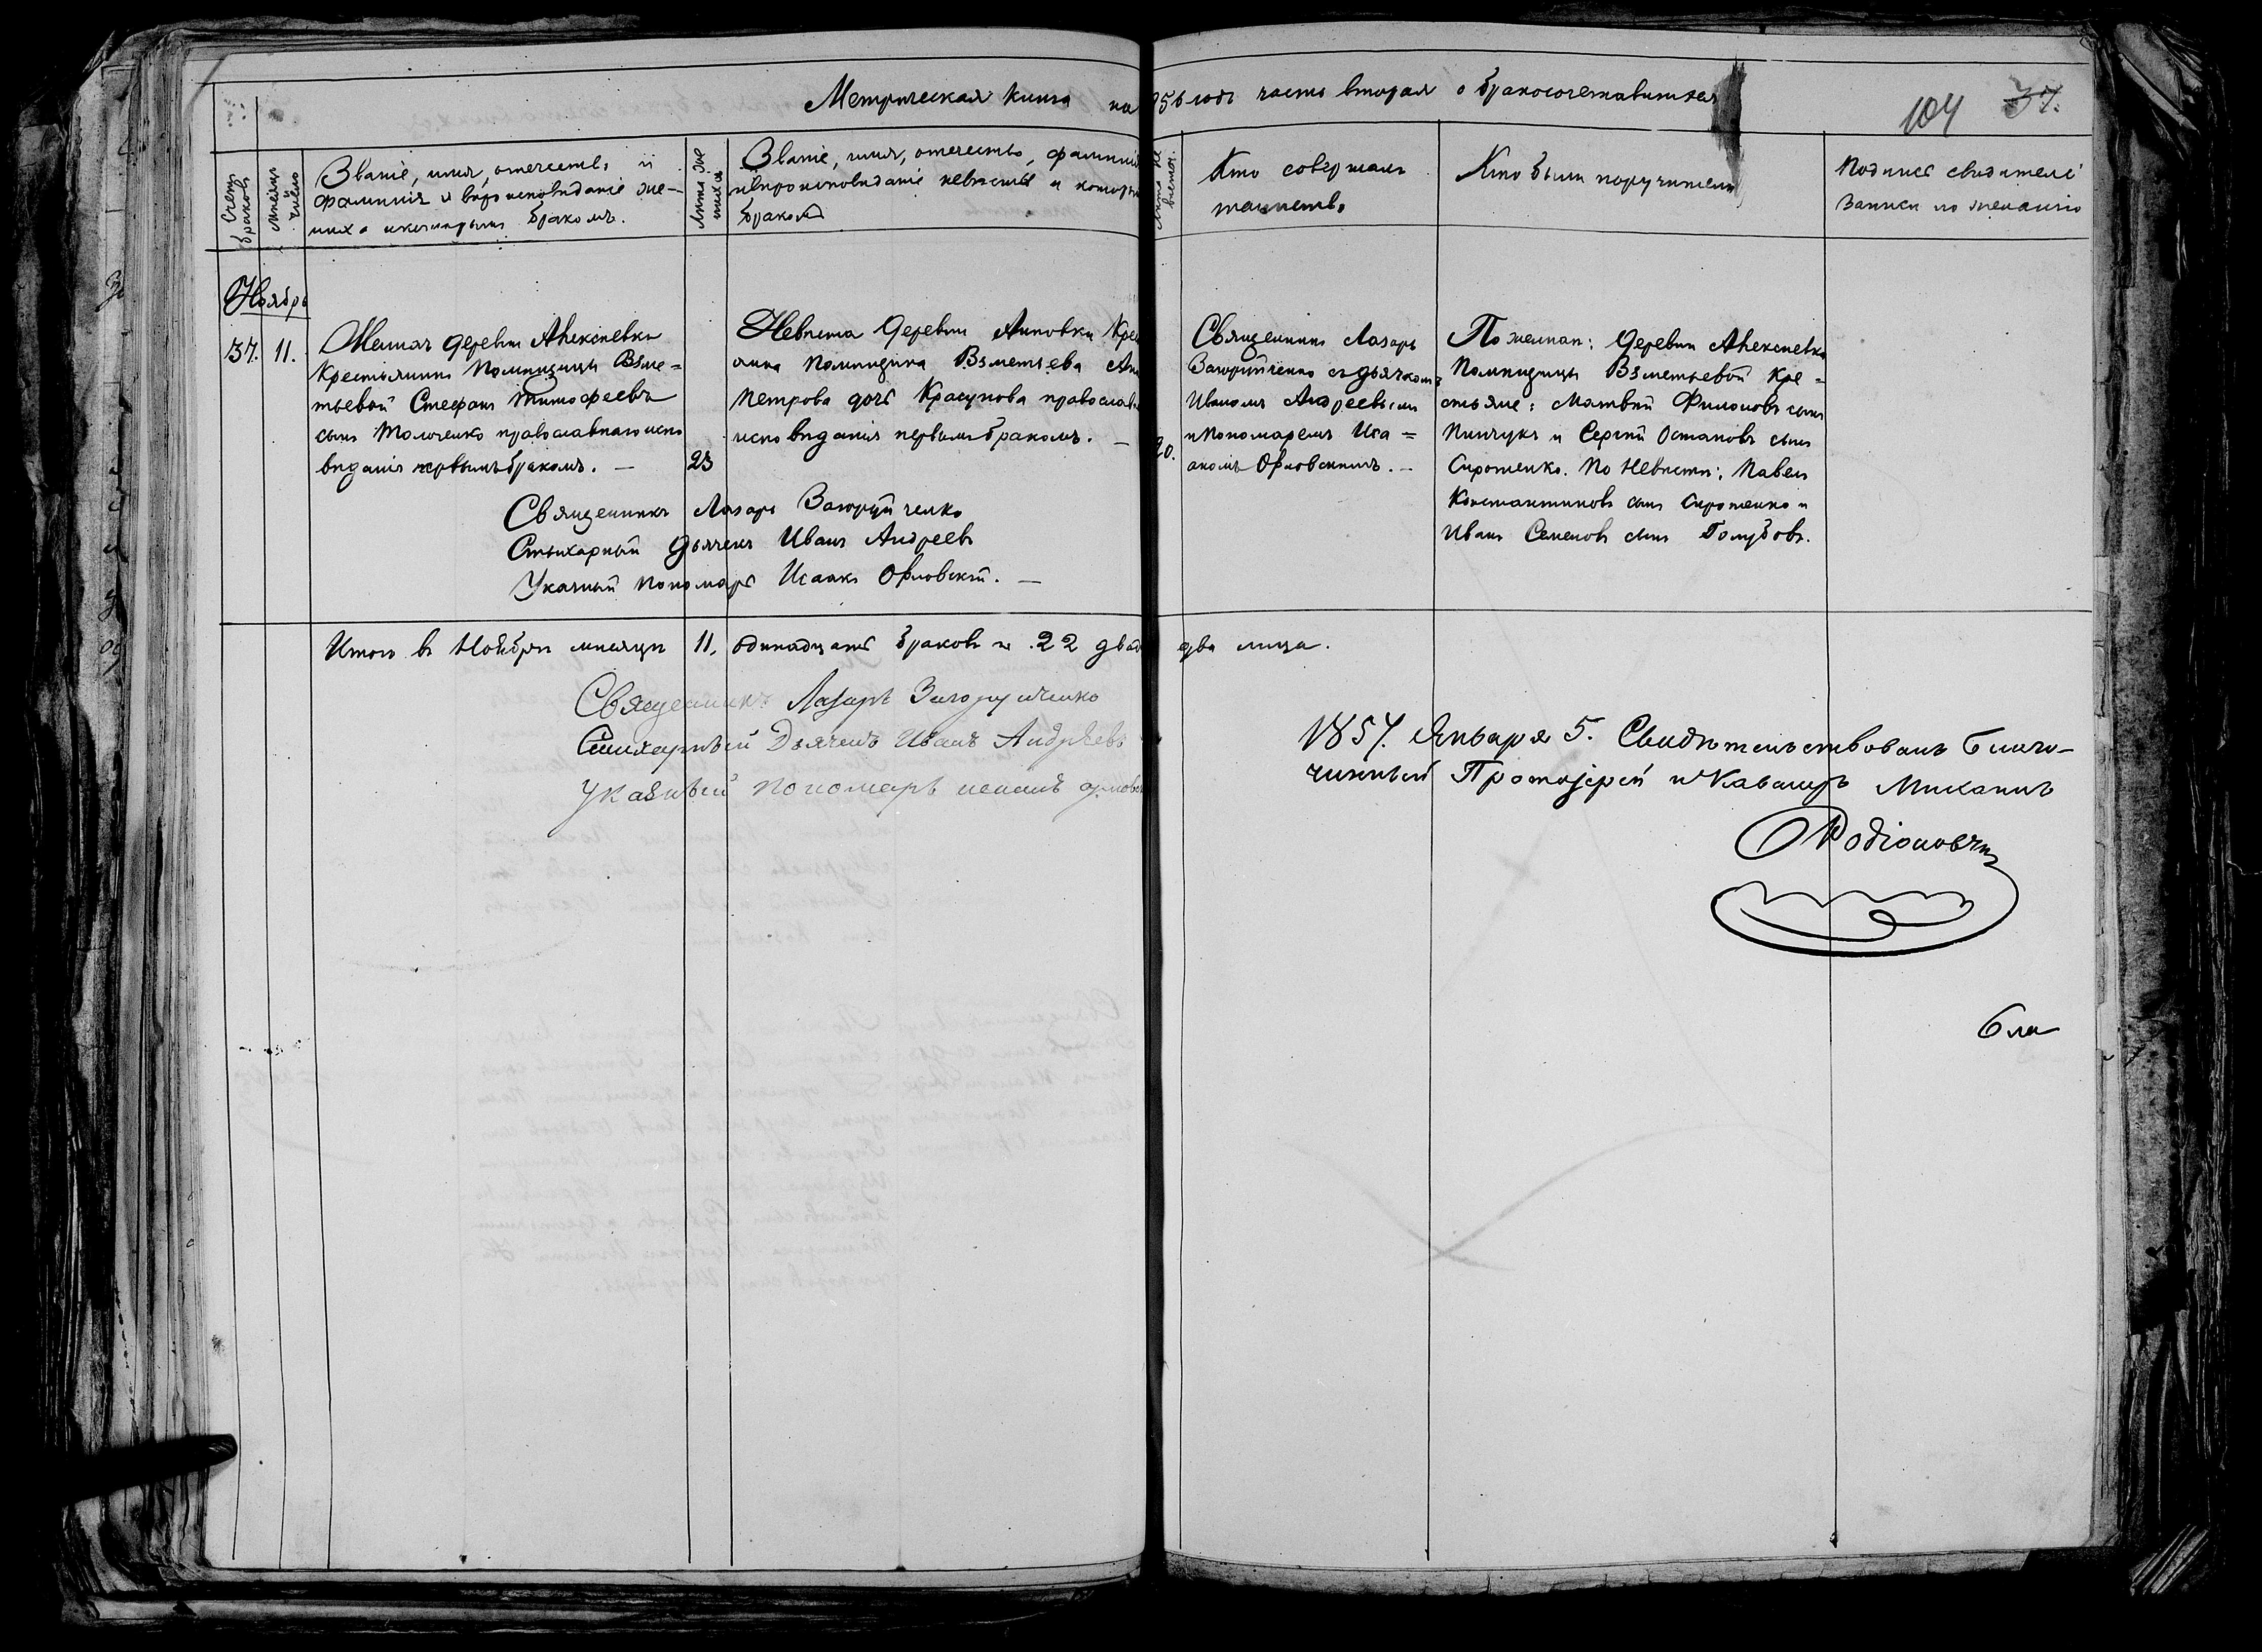 Метрическая книга на 856 годъ часть вторая о бракосочетавшихся
104 37.
Счетъ браковъ
Мѣсяцъ и число
Званіе, имя, отечество и
фамилія и вѣроисповѣданіе же-
ниха и которымъ бракомъ.
Лѣта жениха
Званіе, имя, отечество, фамилія
и вѣроисповѣданіе невѣсты и которымъ
бракомъ
Лѣта невѣсты.
Кто совершалъ
таинство
Кто были поручители
Подпись свидѣтелей
записи по желанію
Ноябрь
37. 11.
Женихъ деревни Алексѣевки
крестьянинъ помѣщицы Взме=
тьевой Стефанъ Тимофеевъ
сынъ Толоченко православнаго испо
вѣданія первымъ бракомъ. —
23
Невѣста деревни Анновки Крес
янка помѣщика Взметьева Анн
Петрова дочь Красунова православ
исповѣданія первымъ бракомъ. —
20.
Священникъ Лазарь
Загоруйченко съ дьячкомъ
Иваномъ Андреевымъ
и пономаремъ Иса=
акомъ Орловскимъ. —
По женихѣ: деревни Алексѣевки
помѣщицы Взметьевой кре=
стьяне: Матвѣй Филоновъ сынъ
Пинчукъ и Сергѣй Остаповъ сынъ
Сиротенко. По невѣстѣ: Павелъ
Константиновъ сынъ Сиротенко и
Иванъ Семеновъ сынъ Голубовъ.
Священникъ Лазарь Загоруйченко
Стихарный дьячекъ Иванъ Андреевъ
Указный пономарь Исаакъ Орловскій. —
Итого въ Ноябрѣ мѣсяцѣ 11, одинадцать браковъ и 22 двад два лица.
Священникъ Лазарь Загоруйченко
Стихарный Дьячекъ Иванъ Андрѣевъ
Указный пономарь исаакъ орловск
1857. Января 5. Свидѣтельствовалъ Благо-
чинный Протоіерей и Кавалеръ Михаилъ
Родіоновъ
бла